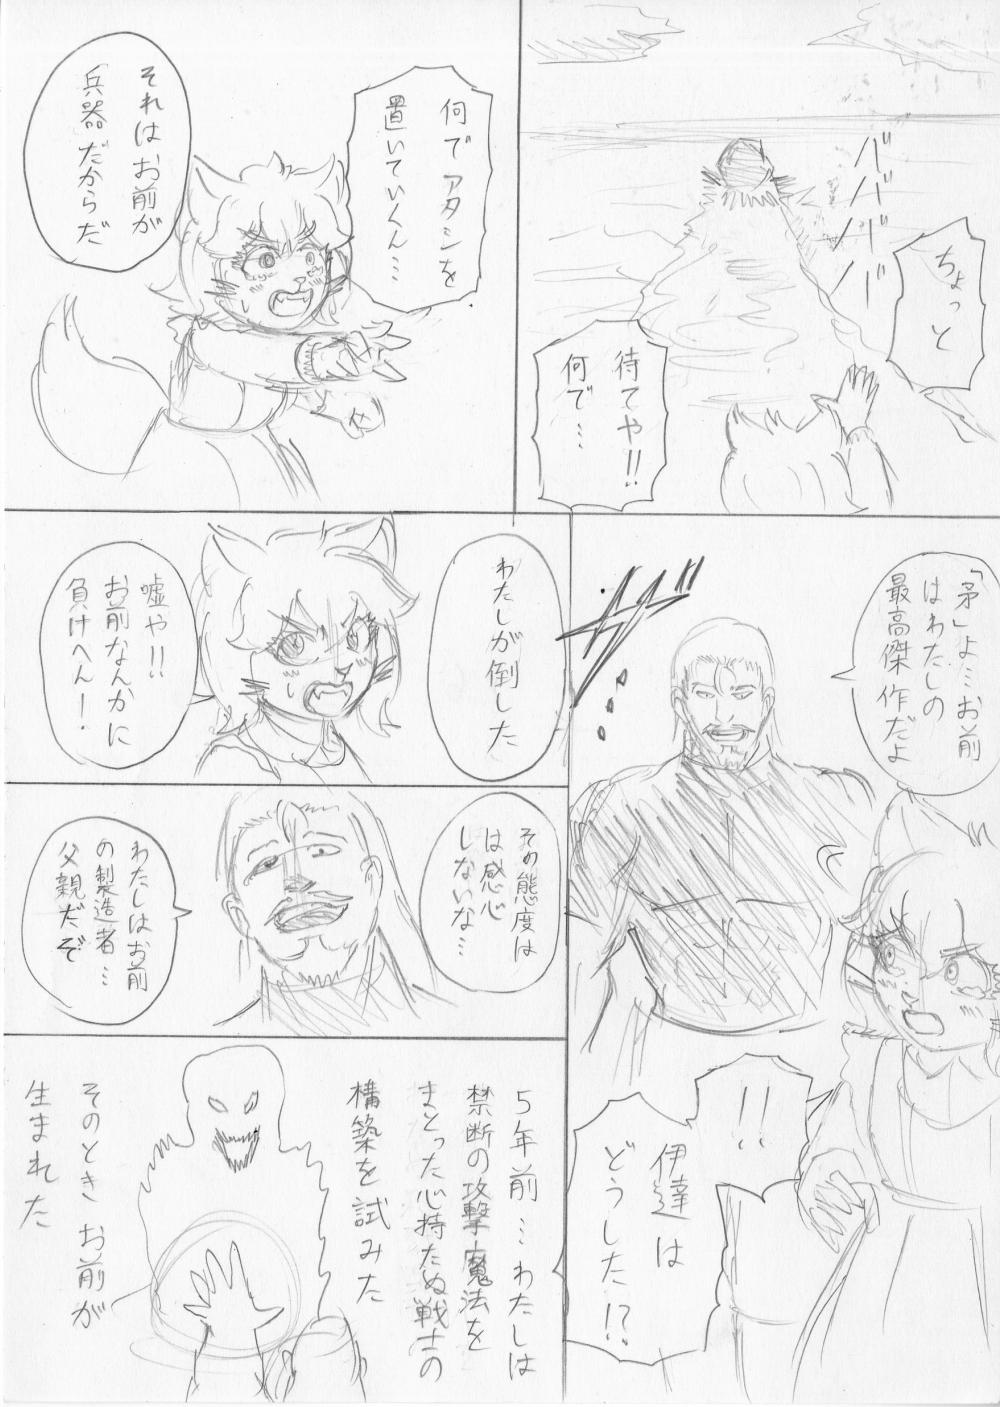 ババババ
ちょっと
待てや!!
何で…
何でアタシを
置いていくん…
それはお前が
「兵器」だからだ
「矛」よ…お前
はわたしの
最高傑作だよ
ザッ…
!!
伊達は
どうした!?
わたしが倒した
嘘や!!
お前なんかに
負けへんー!
その態度は
感心
しないな…
わたしはお前
の製造者…
父親だぞ
5年前…わたしは
禁断の攻撃魔法を
まとった心持たぬ戦士の
構築を試みた
そのときお前が
生まれた